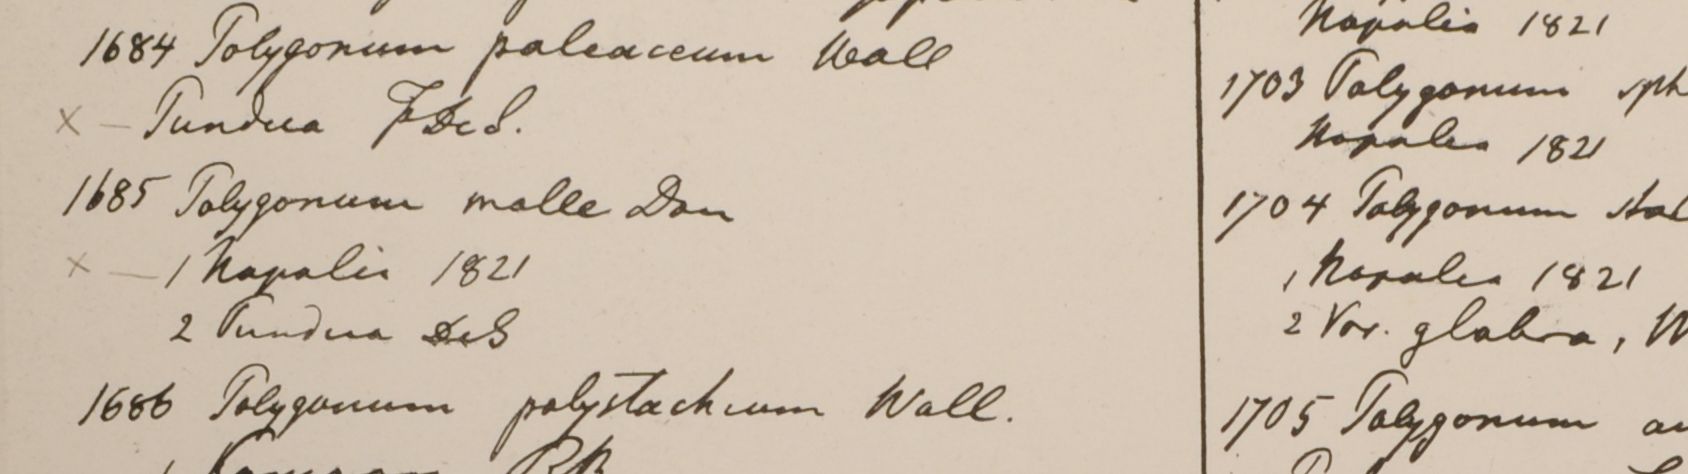 1684 Polygonum paleaceum Wall
x — Pundua F. De S.
1685 Polygonum molle Don
x — 1 Napalia 1821
2 Pundua De S
1686 Polygonum polystachium Wall.
Napalia 1821
1703 Polygonum sph
Napalia 1821
1704 Polygonum stal
1 Napalia 1821
2 Var. glabra, W
1705 Polygonum